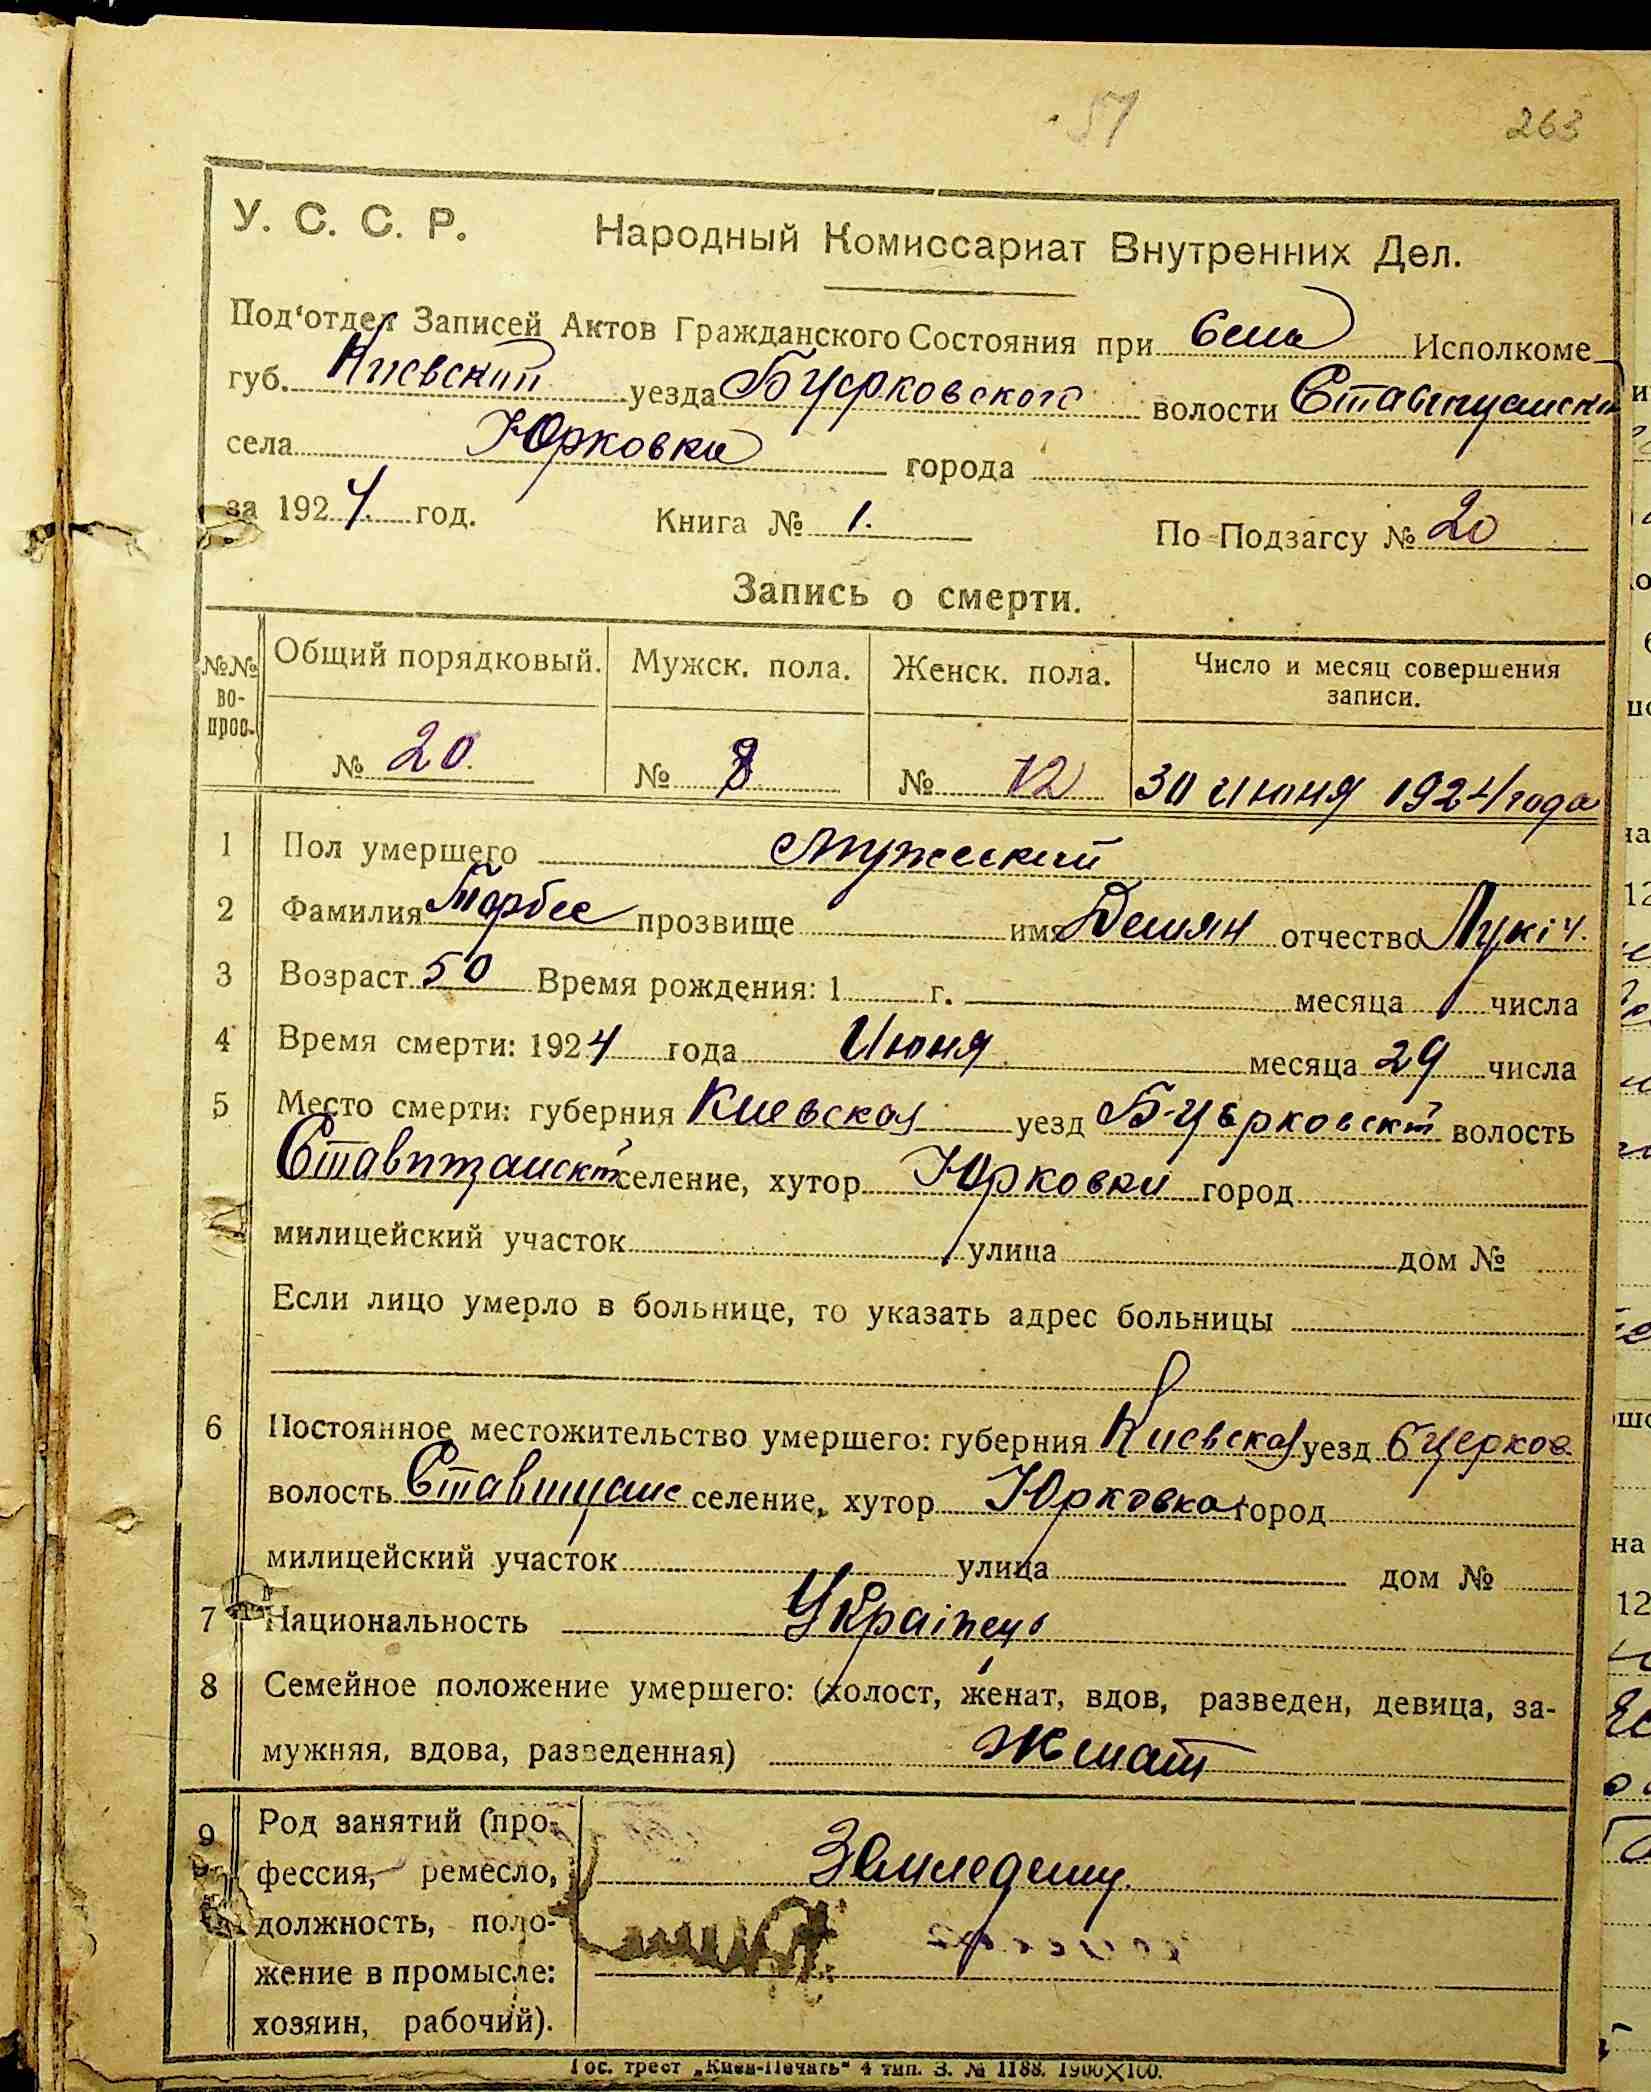 51
263
У. С. С. Р. Народный Комиссариат Внутренних Дел.
Под'отдел Записей Актов Гражданского Состояния при Села Исполкоме
губ. Киевский уезда Б Церковского волости
села Юрковки города
за 1924 год. Книга № 1. По Подзагсу № 20
Запись о смерти.
№№ во-прос. Общий порядковый. Мужск. пола. Женск. пола. Число и месяц совершения записи.
№ 20. № 8 № 12 30 Июня 1924 года
1 Пол умершего Мужеский
2 Фамилия прозвище имя Демян отчество Лукіч.
3 Возраст 50 Время рождения: 1 г. месяца числа
4 Время смерти: 1924 года Июня месяца 29 числа
5 Место смерти: губерния Киевская уезд Б-Церковск волость
селение, хутор Юрковки город
милицейский участок улица дом №
Если лицо умерло в больнице, то указать адрес больницы
6 Постоянное местожительство умершего: губерния Киевская уезд Б Церков
волость селение, хутор Юрковка город
милицейский участок улица дом №
7 Национальность Україпець
8 Семейное положение умершего: (холост, женат, вдов, разведен, девица, за-
мужняя, вдова, разведенная) Женат
9 Род занятий (про-
фессия, ремесло,
должность, поло-
жение в промысле:
хозяин, рабочий).
Гос. трест „Киев-Печать" 4 тип. З. № 1188. 1900×100.